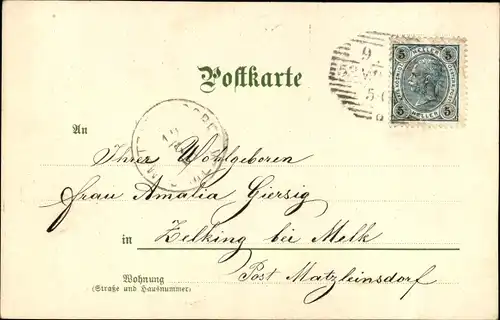 Postkarte
An
Ihrer Wohlgeboren
Frau Amalia Giersig
in Zelking bei Melk
Wohnung
(Straße und Hausnummer)
Post Matzleinsdorf
5 HELLER 5
5 HELLER 5